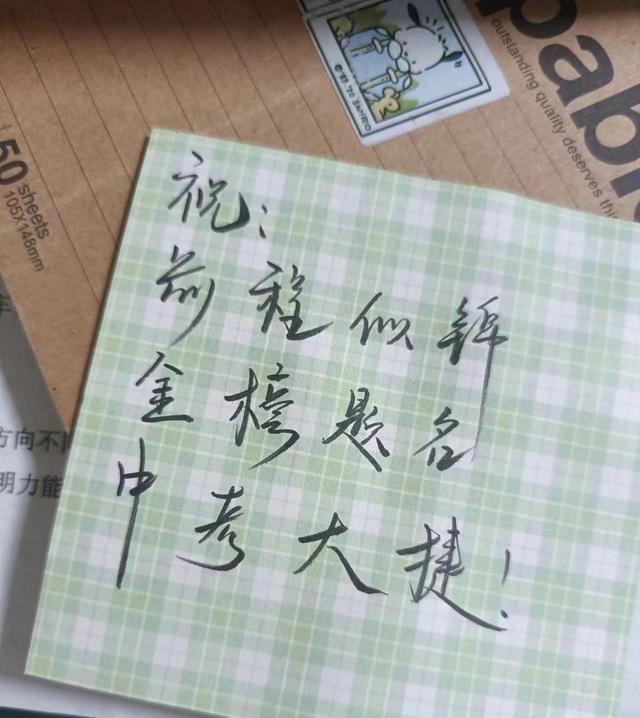 祝：
前程似锦
金榜题名
中考大捷！
pable
outstanding quality deserves this
50 sheets
105X148mm
方向不同
明力能